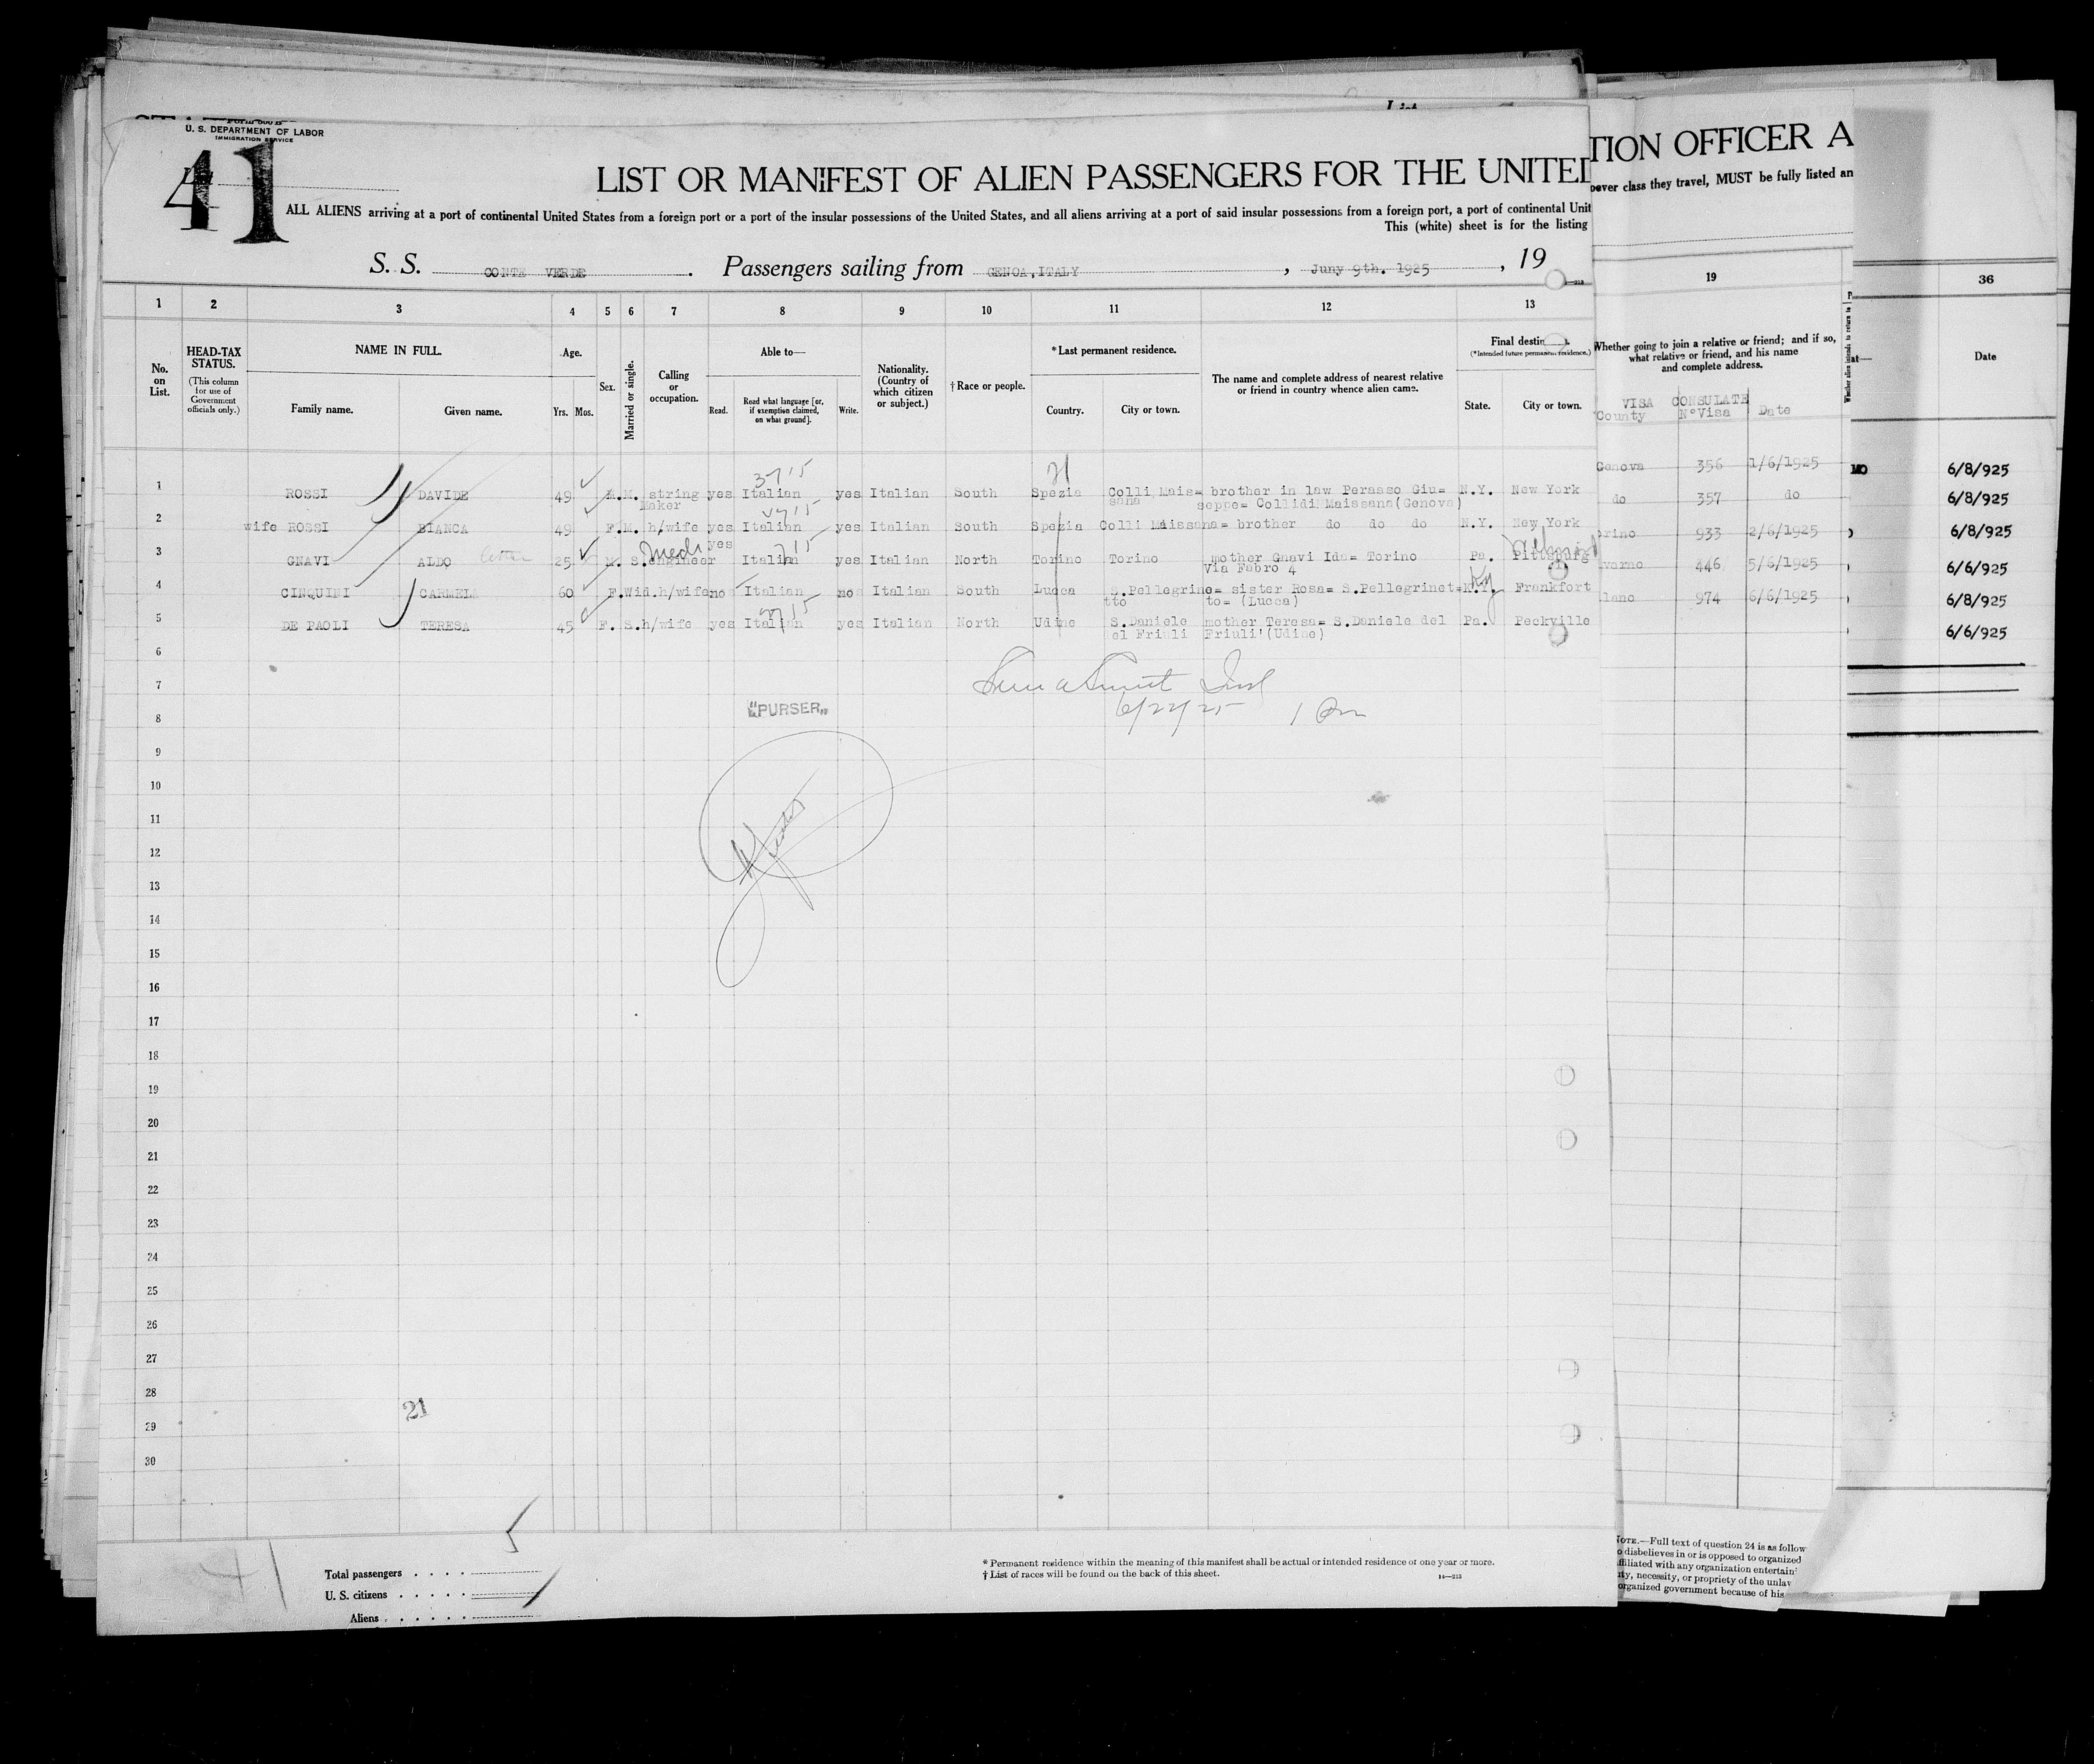 U. S. DEPARTMENT OF LABOR
IMMIGRATION SERVICE
41
LIST OR MANIFEST OF ALIEN PASSENGERS FOR THE UNITED
TION OFFICER A
ALL ALIENS arriving at a port of continental United States from a foreign port or a port of the insular possessions of the United States, and all aliens arriving at a port of said insular possessions from a foreign port, a port of continental Unit
oever class they travel, MUST be fully listed an
This (white) sheet is for the listing
S. S. CONTE VERDE . Passengers sailing from GENOA, ITALY , Juny 9th. 1925 , 19
1 2 3 4 5 6 7 8 9 10 11 12 13 19 36
No. on List.
HEAD-TAX STATUS.
(This column for use of Government officials only.)
NAME IN FULL.
Family name. Given name.
Age.
Yrs. Mos.
Sex.
Married or single.
Calling or occupation.
Able to—
Read. Read what language [or, if exemption claimed, on what ground]. Write.
Nationality. (Country of which citizen or subject.)
† Race or people.
* Last permanent residence.
Country. City or town.
The name and complete address of nearest relative or friend in country whence alien came.
Final destin
(*Intended future permanent residence.)
State. City or town.
Whether going to join a relative or friend; and if so, what relative or friend, and his name and complete address.
VISA CONSULATE
County N° Visa Date
Whether alien intends to return to
Date
1 ROSSI DAVIDE 49 M. M. string yes Italian yes Italian South Spezia Colli Mais= brother in law Perasso Giu= N.Y. New York Genova 356 1/6/1925 6/8/925
Maker sana seppe= Collidi Maissana(Genova)
2 wife ROSSI BIANCA 49 F. M. h/wife yes Italian yes Italian South Spezia Colli Maissana= brother do do do N.Y. New York do 357 do 6/8/925
3 GNAVI ALDO 25 M. S. engineer yes Italian yes Italian North Torino Torino mother Gnavi Ida= Torino Pa. Pittsburg orino 933 2/6/1925 6/8/925
Via Fabro 4
4 CINQUINI CARMELA 60 F. Wid. h/wife no Italian no Italian South Lucca S.Pellegrine= sister Rosa= S.Pellegrinet= N.Y. Ky Frankfort vorno 446 5/6/1925 6/6/925
tto to= (Lucca)
5 DE PAOLI TERESA 45 F. S. h/wife yes Italian yes Italian North Udine S.Daniele mother Teresa= S.Daniele del Pa. Peckville lano 974 6/6/1925 6/8/925
el Friuli Friuli (Udine)
6 6/6/925
7
6/22/25 1 Pm
8 "PURSER"
9
10
11
12
13
14
15
16
17
18
19
20
21
22
23
24
25
26
27
28
21
29
30
41
Total passengers
U. S. citizens
Aliens
* Permanent residence within the meaning of this manifest shall be actual or intended residence of one year or more.
† List of races will be found on the back of this sheet.
NOTE.—Full text of question 24 is as follow
o disbelieves in or is opposed to organized
ffiliated with any organization entertain
ty, necessity, or propriety of the unlaw
organized government because of his